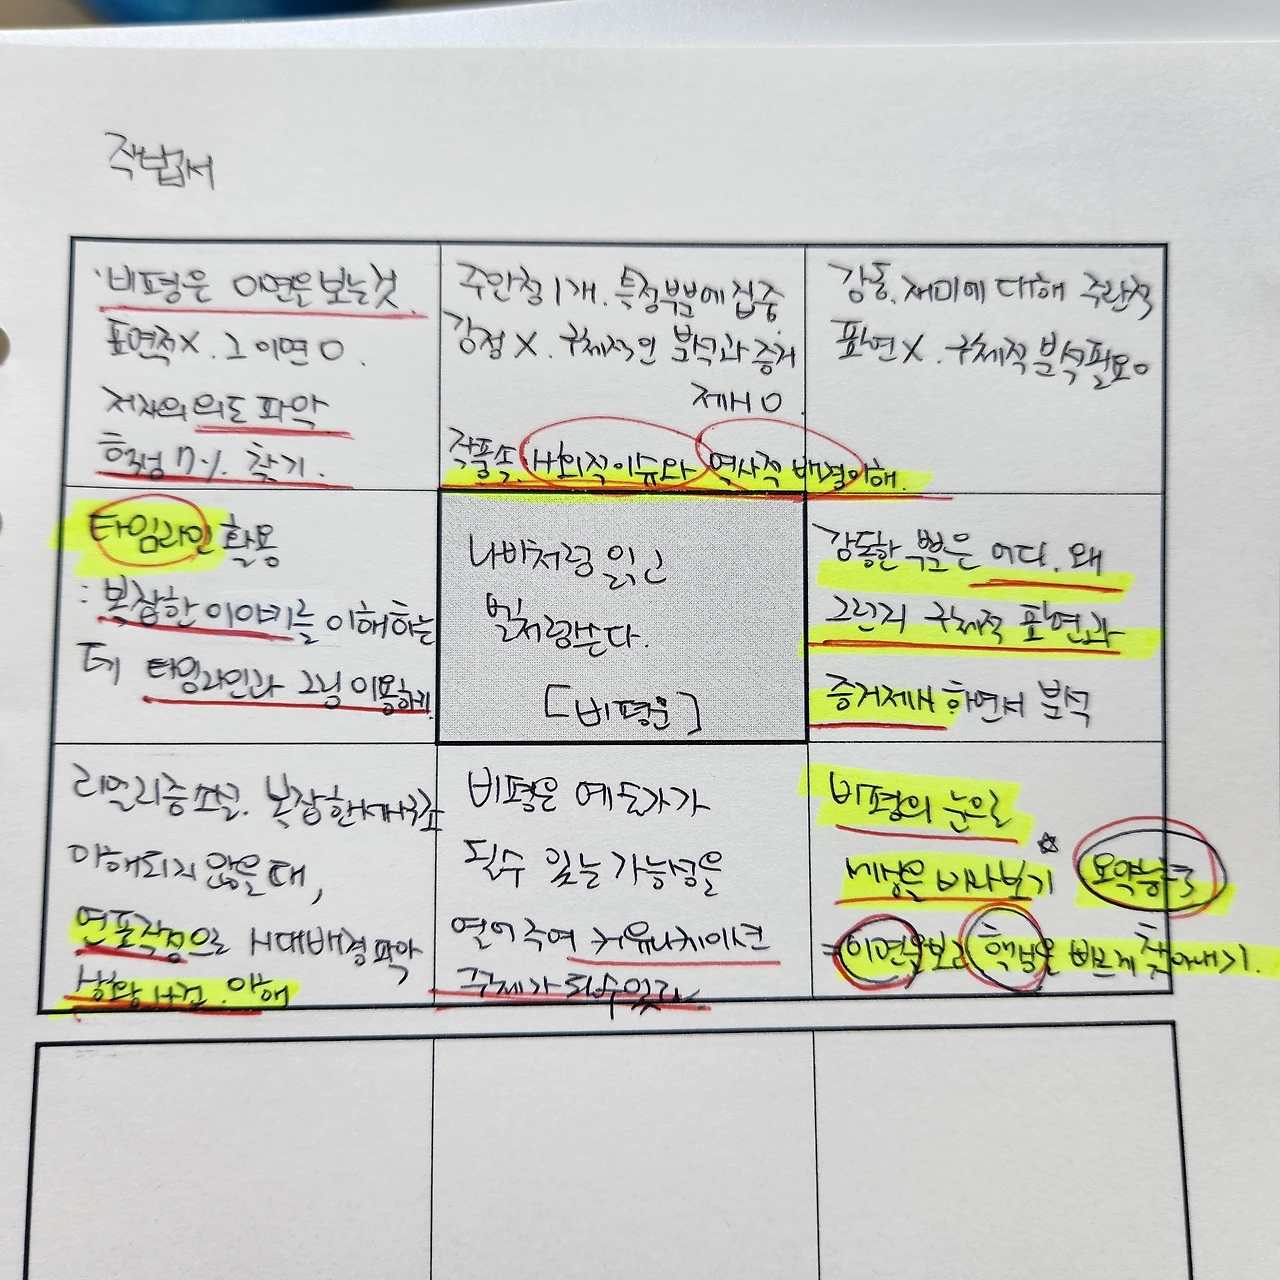 작법서
비평은 이면을 보는것
표면적X. 그 이면O.
저자의 의도 파악
핵심가치 찾기.
주안점 1개. 특정부분에 집중
감정X. 구체적인 분석과 증거
제시O.
작품속 사회적이슈와 역사적 배경이해.
감동. 재미에 대해 주관적
표현X. 구체적 분석필요O
타임라인 활용
: 복잡한 이야기를 이해하는
데 타임라인과 그림 이용하기.
나비처럼 읽고
벌처럼쓴다.
[비평문]
감동한 부분은 어디. 왜
그런지 구체적 표현과
증거제시 하면서 분석
리얼리즘소설. 복잡한
이해되지 않을때,
연표작성으로 시대배경파악
상황, 사건. 이해
비평은 예술가가
될수 있는 가능성을
열어주며 커뮤니케이션
주제가 될수있다
비평의 눈으로
세상을 바라보기
요약능력
=이면을보고 핵심을 빠르게 찾아내기.